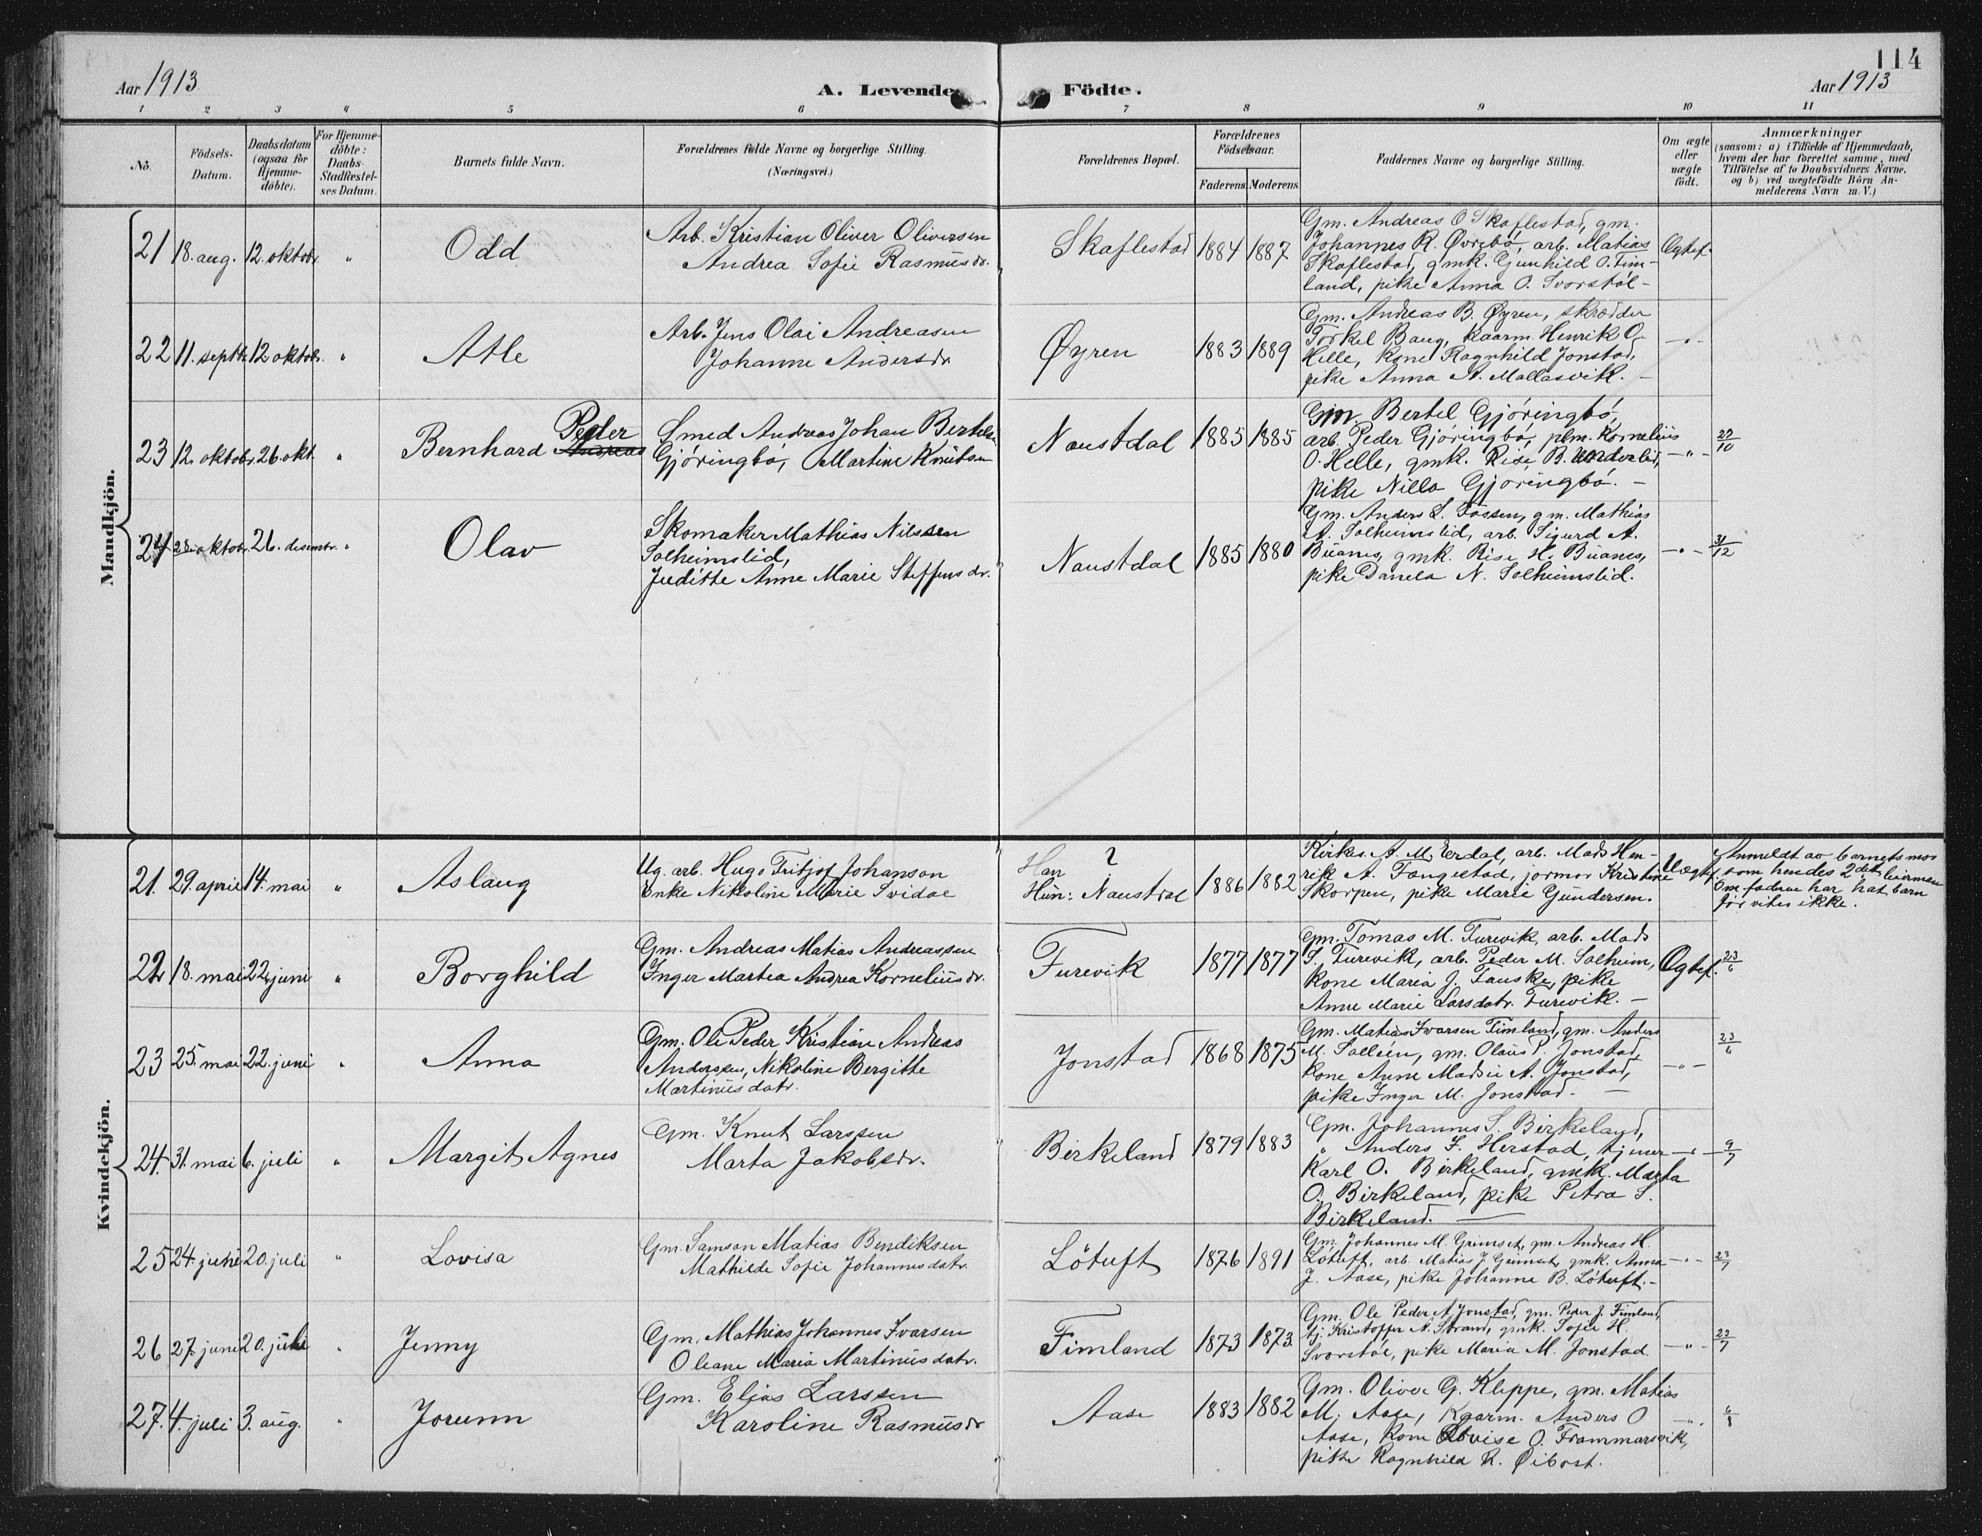 114
Aar 1913
A. Levende Födte.
Aar 1913
1 2 3 4 5 6 7 8 9 10 11
No.
Födsels-
Datum.
Daabsdatum
(ogsaa for
Hjemme-
döbte).
For Hjemme-
döbte:
Daabs-
Stadfæstel-
ses Datum.
Barnets fulde Navn.
Forældrenes fulde Navne og borgerlige Stilling.
(Næringsvei.)
Forældrenes Bopæl.
Forældrenes
Födselsaar.
Faderens. Moderens.
Faddernes Navne og borgerlige Stilling.
Om ægte
eller
uægte
födt.
Anmærkninger
(saasom: a) i Tilfælde af Hjemmedaab,
hvem der har forrettet samme, med
Tilföielse af to Daabsvidners Navne.
og b) ved uægtefödte Börn An-
melderens Navn m. V.)
Mandkjön.
21 18. aug. 12. oktobr. "
Odd
Arb. Kristian Oliver Oliversen
Andrea Sofie Rasmusdr.
Skaflestad
1884 1887
Gm. Andreas O. Skaflestad, gm.
Johannes R. Øvrebö, arb. Matias
Skaflestad, gmk. Gunhild O. Tim-
land, pike Anna O. Svorstöl -
Egtef.
22 11. septbr. 12 oktobr. "
Atle
Arb. Jens Olai Andreasen
Johanne Andersdr.
Øyren
1883 1889
Gm. Andreas B. Øyren, skrædder
Torkel Baug, kaarm. Henrik O.
Helle, kone Ragnhild Jonstad,
pike Anna A. Mallasvik. -
- " -
23 12. oktobr. 26. okt. "
Bernhard Peder Andreas
Smed Andreas Johan Bertels.
Gjöringbö, Martine Knutsen
Naustdal
1885 1885
Gm. Bertel Gjöringbö,
arb. Peder Gjöringbö, plm. Kornelius
O. Helle, gmk. Rise B. Underlid,
pike Nilla Gjöringbö. -
- " -
29/10
24 28. oktobr. 26. desembr. "
Olav
Skomaker Mathias Nilssen
Solheimslid,
Juditte Anne Marie Steffensdr.
Naustdal
1885 1880
Gm. Anders L. Fossen, gm. Mathias
A. Solheimslid, arb. Sigurd A.
Buanes, gmk. Rise H. Buanes,
pike Daniela N. Solheimslid.
- " -
31/12
Kvindekjön.
21. 29. april 14. mai "
Aslaug
Ug. arb. Hugo Fritjof Johanson
Enke Nikoline Marie Svidal
Han ?
Hun: Naustdal
1886 1882
Kirkes. A. M. Erdal, arb. Mads Hen-
rik A. Fangestad, jormor Kristine
Skorpen, pike Marie Gundersen.
Uægtef.
Anmeldt av barnets mor
som hendes 2det leierman
Om faderen har hat barn
før vites ikke.
22 18. mai 22. juni "
Borghild
Gm. Andreas Matias Andreassen
Inger Martea Andrea Korneliusdr.
Furevik
1877 1877
Gm. Tomas M. Furevik, arb. Mads
S. Furevik, arb. Peder M. Solheim,
kone Maria J. Fauske, pike
Anne Marie Larsdatr. Furevik. -
Egtef.
23/6
23 25. mai 22. juni "
Anna
Gm. Ole Peder Kristian Andreas
Anderssen, Nikoline Bergitte
Martinusdatr.
Jonstad
1868 1875
Gm. Matias Ivarsen Timland, gm. Anders
M. Solleim, gm. Olaus P. Jonstad,
kone Anne Madsie A. Jonstad,
pike Inger M. Jonstad. -
- " -
23/6
24. 31. mai 6. juli "
Margit Agnes
Gm. Knut Larssen
Marta Jakobsdr.
Birkeland
1879 1883
Gm. Johannes S. Birkeland,
" Anders F. Herstad, tjener
Karl O. Birkeland, gmk. Marta
O. Birkeland, pike Petra S.
Birkeland.
- " -
9/7
25 24. juni 20. juli "
Lovisa
Gm. Samson Matias Bendiksen
Mathilde Sofie Johannesdatr.
Lötuft
1876 1891
Gm. Johannes M. Grimset, gm Andreas H.
Lötuft, arb. Matias J. Grimset, gmk. Anna
J. Aase, pike Johanne B. Lötuft. -
- " -
23/7
26 27. juni 20. juli "
Jenny
Gm. Mathias Johannes Ivarsen
Oleane Maria Martinusdatr.
Timland
1873 1873
Gm. Ole Peder A. Jonstad, gm. Peder J. Timland,
tj. Kristoffer N. Strand, gmk. Sofie H.
Svorstöl, pike Maria M. Jonstad
- " -
22/7
27. 4. juli 3. aug. "
Jorunn
Gm. Elias Larssen
Karoline Rasmusdr
Aase
1883 1882
Gm. Oliver G. Kleppe, gm. Matias
M. Aase, Kaarm. Anders O
Aase, kone Lovise O. Frammarsvik,
pike Ragnhild K.
- " -
6/8